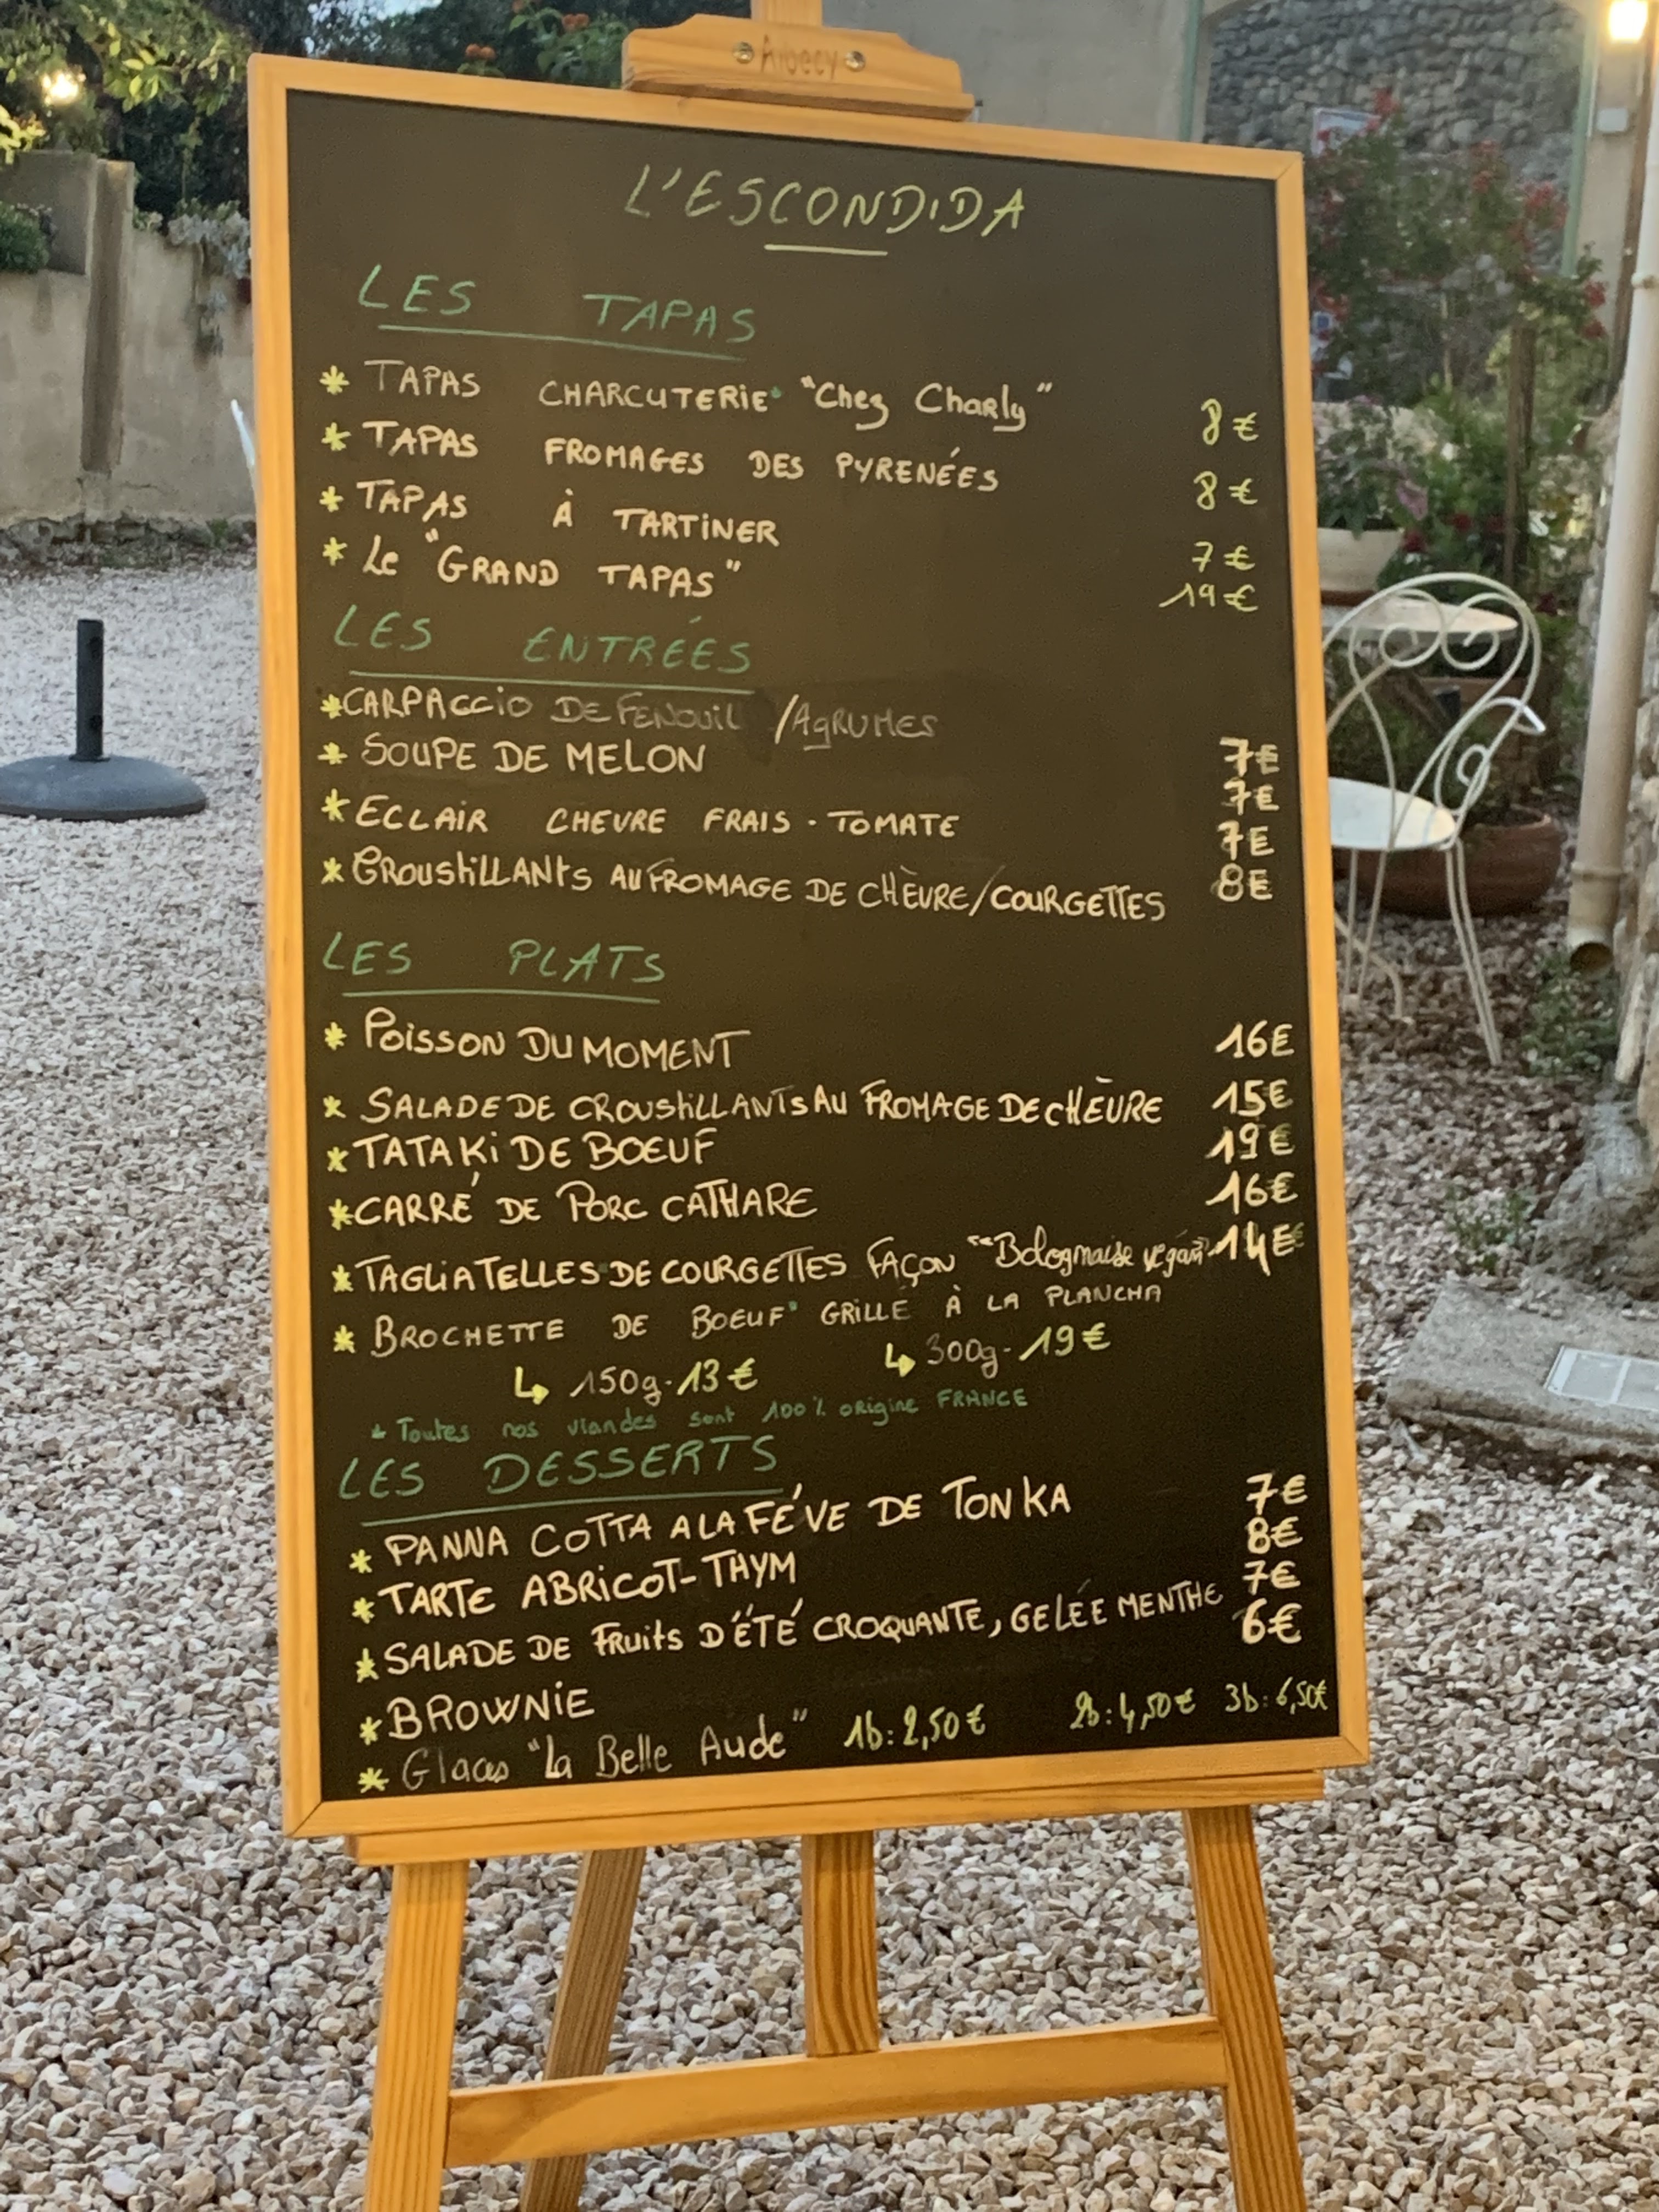 Albecy
L'ESCONDIDA
LES TAPAS
* TAPAS CHARCUTERIE* "Chez Charly" 8€
* TAPAS FROMAGES DES PYRENÉES 8€
* TAPAS À TARTINER 7€
* Le "GRAND TAPAS" 19€
LES ENTRÉES
* CARPACCIO DE FENOUIL /AGRUMES 7€
* SOUPE DE MELON 7€
* ECLAIR CHEVRE FRAIS - TOMATE 7€
* CROUSTILLANTS AU FROMAGE DE CHÈVRE/COURGETTES 8€
LES PLATS
* POISSON DU MOMENT 16€
* SALADE DE CROUSTILLANTS AU FROMAGE DE CHÈVRE 15€
* TATAKI DE BOEUF 19€
* CARRÉ DE PORC CATHARE 16€
* TAGLIATELLES DE COURGETTES FAÇON "Bolognaise végan" 14€
* BROCHETTE DE BOEUF* GRILLÉ À LA PLANCHA
↳ 150g - 13€ ↳ 300g - 19€
* Toutes nos viandes sont 100% origine FRANCE
LES DESSERTS
* PANNA COTTA A LA FÉVE DE TONKA 7€
* TARTE ABRICOT-THYM 8€
* SALADE DE FRUITS D'ÉTÉ CROQUANTE, GELÉE MENTHE 7€
* BROWNIE 6€
* Glaces "La Belle Aude" 1b: 2,50€ 2b: 4,50€ 3b: 6,50€